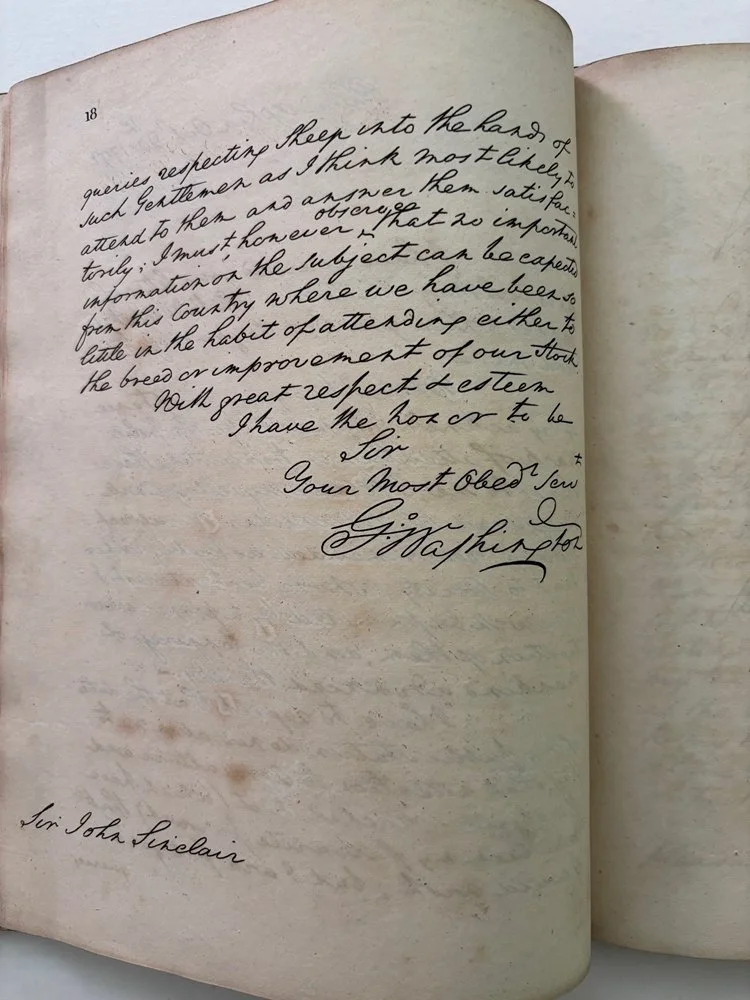 18
queries respecting Sheep into the hands of
such Gentlemen as I think most likely to
attend to them and answer them satisfac=
torily; I must, however ^observe, that no important
information on the subject can be expected
from this Country where we have been so
little in the habit of attending either to
the breed or improvement of our Stock.
With great respect & esteem
I have the honor to be
Sir
Your Most Obedt Servt
Go: Washington
Sir John Sinclair